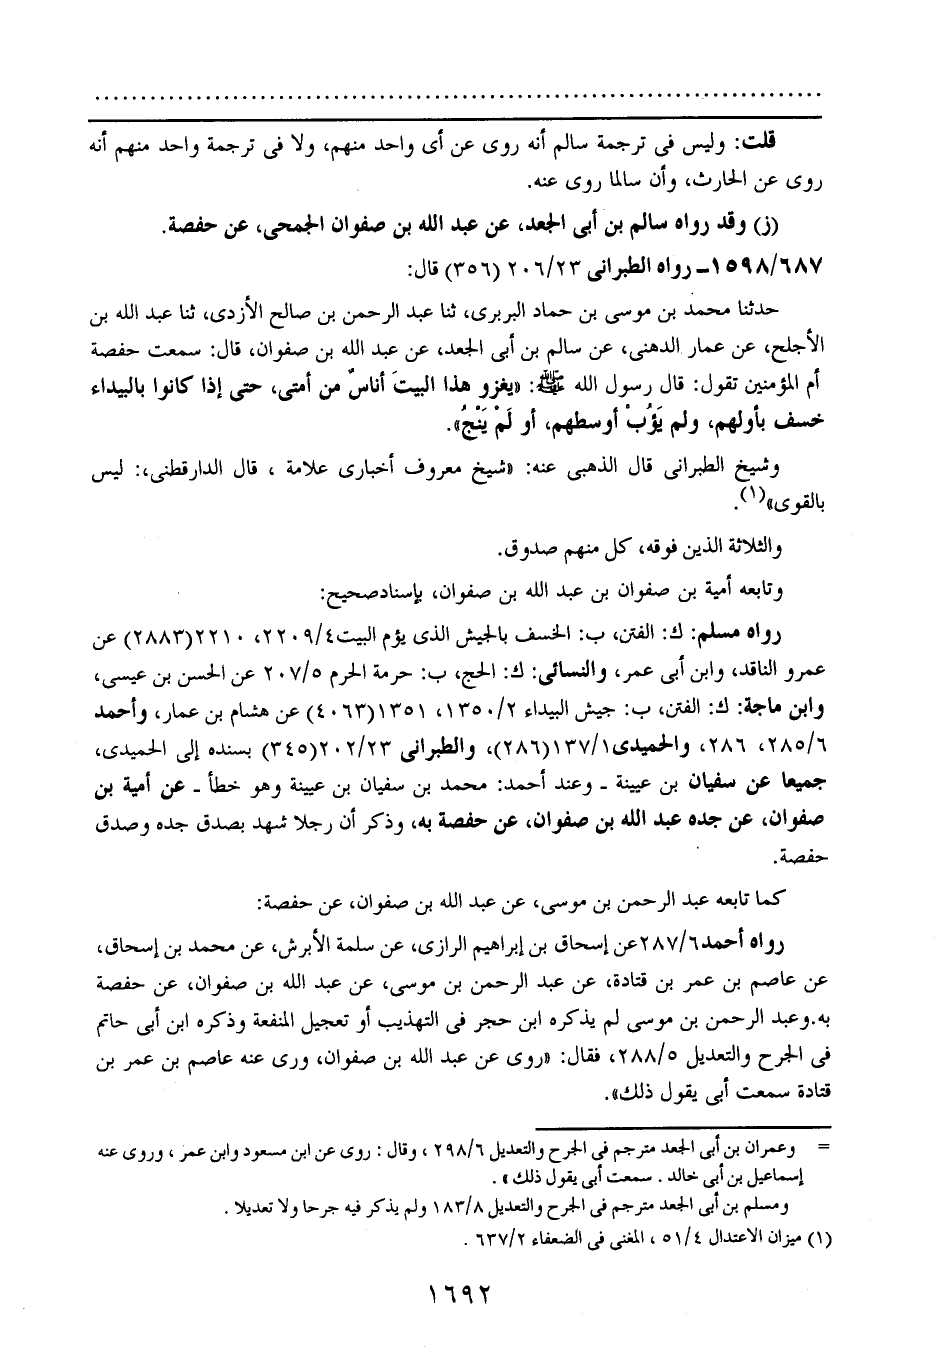 قلت: وليس فى ترجمة سالم أنه روى عن أى واحد منهم، ولا فى ترجمة واحد منهم أنه
روى عن الحارث، وأن سالما روى عنه.
(ز) وقد رواه سالم بن أبى الجعد، عن عبد الله بن صفوان الجمحى، عن حفصة.
١٥٩٨/٦٨٧ـ رواه الطبرانى ٢٠٦/٢٣ (٣٥٦) قال:
حدثنا محمد بن موسى بن حماد البربرى، ثنا عبد الرحمن بن صالح الأزدى، ثنا عبد الله بن
الأجلح، عن عمار الدهنى، عن سالم بن أبى الجعد، عن عبد الله بن صفوان، قال: سمعت حفصة
أم المؤمنين تقول: قال رسول الله ﷺ: «يغزو هذا البيتَ أناسٌ من أمتى، حتى إذا كانوا بالبيداء
خسف بأولهم، ولم يَؤُبْ أوسطهم، أو لَمْ يَنْجُ».
وشيخ الطبرانى قال الذهبى عنه: «شيخ معروف أخبارى علامة ، قال الدارقطنى،: ليس
بالقوى»(١).
والثلاثة الذين فوقه، كل منهم صدوق.
وتابعه أمية بن صفوان بن عبد الله بن صفوان، بإسنادصحيح:
رواه مسلم: ك: الفتن، ب: الخسف بالجيش الذى يؤم البيت٢٢٠٩/٤، ٢٢١٠(٢٨٨٣) عن
عمرو الناقد، وابن أبى عمر، والنسائى: ك: الحج، ب: حرمة الحرم ٢٠٧/٥ عن الحسن بن عيسى،
وابن ماجة: ك: الفتن، ب: جيش البيداء ١٣٥٠/٢، ١٣٥١(٤٠٦٣) عن هشام بن عمار، وأحمد
٢٨٥/٦، ٢٨٦، والحميدى١٣٧/١(٢٨٦)، والطبرانى ٢٠٢/٢٣(٣٤٥) بسنده إلى الحميدى،
جميعا عن سفيان بن عيينة ـ وعند أحمد: محمد بن سفيان بن عيينة وهو خطأ ـ عن أمية بن
صفوان، عن جده عبد الله بن صفوان، عن حفصة به، وذكر أن رجلا شهد بصدق جده وصدق
حفصة.
كما تابعه عبد الرحمن بن موسى، عن عبد الله بن صفوان، عن حفصة:
رواه أحمد٢٨٧/٦عن إسحاق بن إبراهيم الرازى، عن سلمة الأبرش، عن محمد بن إسحاق،
عن عاصم بن عمر بن قتادة، عن عبد الرحمن بن موسى، عن عبد الله بن صفوان، عن حفصة
به.وعبد الرحمن بن موسى لم يذكره ابن حجر فى التهذيب أو تعجيل المنفعة وذكره ابن أبى حاتم
فى الجرح والتعديل ٢٨٨/٥، فقال: «روى عن عبد الله بن صفوان، ورى عنه عاصم بن عمر بن
قتادة سمعت أبى يقول ذلك».
= وعمران بن أبى الجعد مترجم فى الجرح والتعديل ٢٩٨/٦ ، وقال : روى عن ابن مسعود وابن عمر ، وروى عنه
إسماعيل بن أبى خالد . سمعت أبى يقول ذلك » .
ومسلم بن أبى الجعد مترجم فى الجرح والتعديل ١٨٣/٨ ولم يذكر فيه جرحا ولا تعديلا .
(١) ميزان الاعتدال ٥١/٤ ، المغنى فى الضعفاء ٦٣٧/٢ .
١٦٩٢